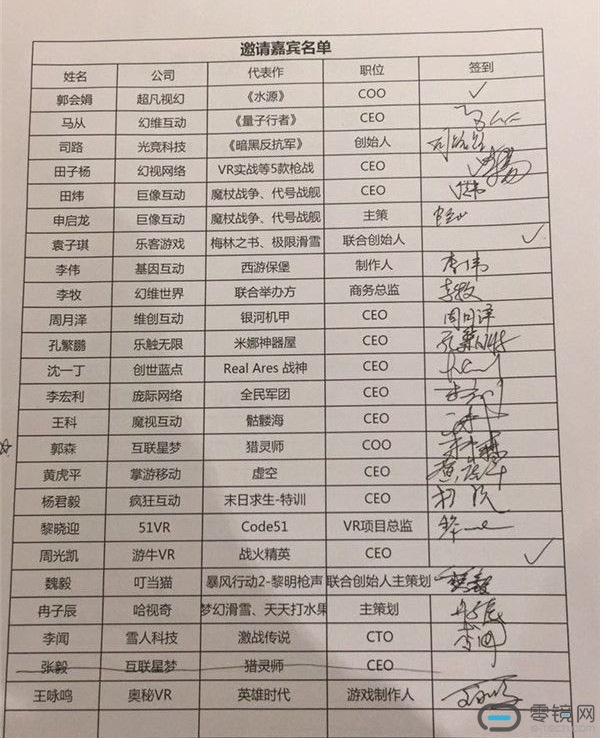 邀请嘉宾名单
姓名 公司 代表作 职位 签到
郭会娟 超凡视幻 《水源》 COO ✓
马从 幻维互动 《量子行者》 CEO
司路 光竞科技 《暗黑反抗军》 创始人 司路
田子杨 幻视网络 VR实战等5款枪战 CEO
田炜 巨像互动 魔杖战争、代号战舰 CEO
申启龙 巨像互动 魔杖战争、代号战舰 主策
袁子琪 乐客游戏 梅林之书、极限滑雪 联合创始人 ✓
李伟 基因互动 西游保堡 制作人 李伟
李牧 幻维世界 联合举办方 商务总监 李牧
周月泽 维创互动 银河机甲 CEO 周月泽
孔繁鹏 乐触无限 米娜神器屋 CEO
沈一丁 创世蓝点 Real Ares 战神 CEO
李宏利 庞际网络 全民军团 CEO
王科 魔视互动 骷髅海 CEO
郭森 互联星梦 猎灵师 COO
黄虎平 掌游移动 虚空 CEO
杨君毅 疯狂互动 末日求生-特训 CEO
黎晓迎 51VR Code51 VR项目总监
周光凯 游牛VR 战火精英 CEO ✓
魏毅 叮当猫 暴风行动2-黎明枪声 联合创始人主策划
冉子辰 哈视奇 梦幻滑雪、天天打水果 主策划
李闻 雪人科技 激战传说 CTO 李闻
张毅 互联星梦 猎灵师 CEO
王咏鸣 奥秘VR 英雄时代 游戏制作人
零镜网